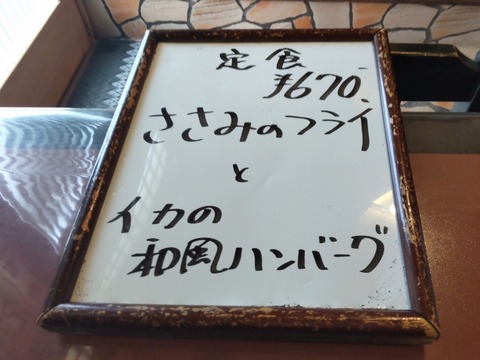 定食
¥670.
ささみのフライ
と
イカの
和風ハンバーグ